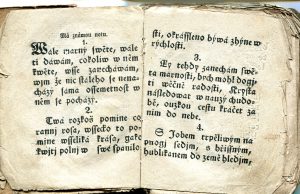 Má známou notu.
1.
Wale marný swěte, wale
ti dáwám, cokoliw w něm
kwěte, wsse zanecháwám,
wzm že nic stáleho je nena-
chází jama ossemetnost w
něm je pochází.
2.
Twá rozkoš pomine co
ranní rosa, wssecko to po-
mine wsseliká krása, gako
kwitj polnj w swe spanilo-
sti, okrássleno býwá zhyne w
rychlosti.
3.
Ey tehdy zanechám swě-
ta marnosti, bych mohl dogí-
ti wěčné radosti, Krysta
následowat w nauzy chudo-
bě, auzkou cestu kráčet za
ním do nebe.
4.
S Jobem trpěliwým na
hnogi sedjm, s hřissným
publikánem do země hledjm,